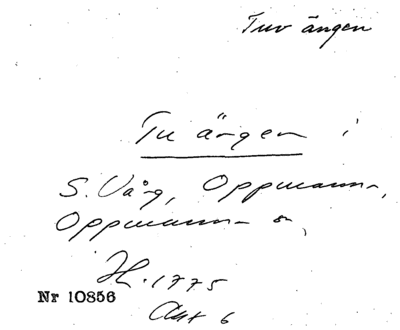 Tuv ängen
Tu ängen i
S. Våg, Oppmanna,
Oppmanna sn,
H. 1775
Nr 10856
Akt 6